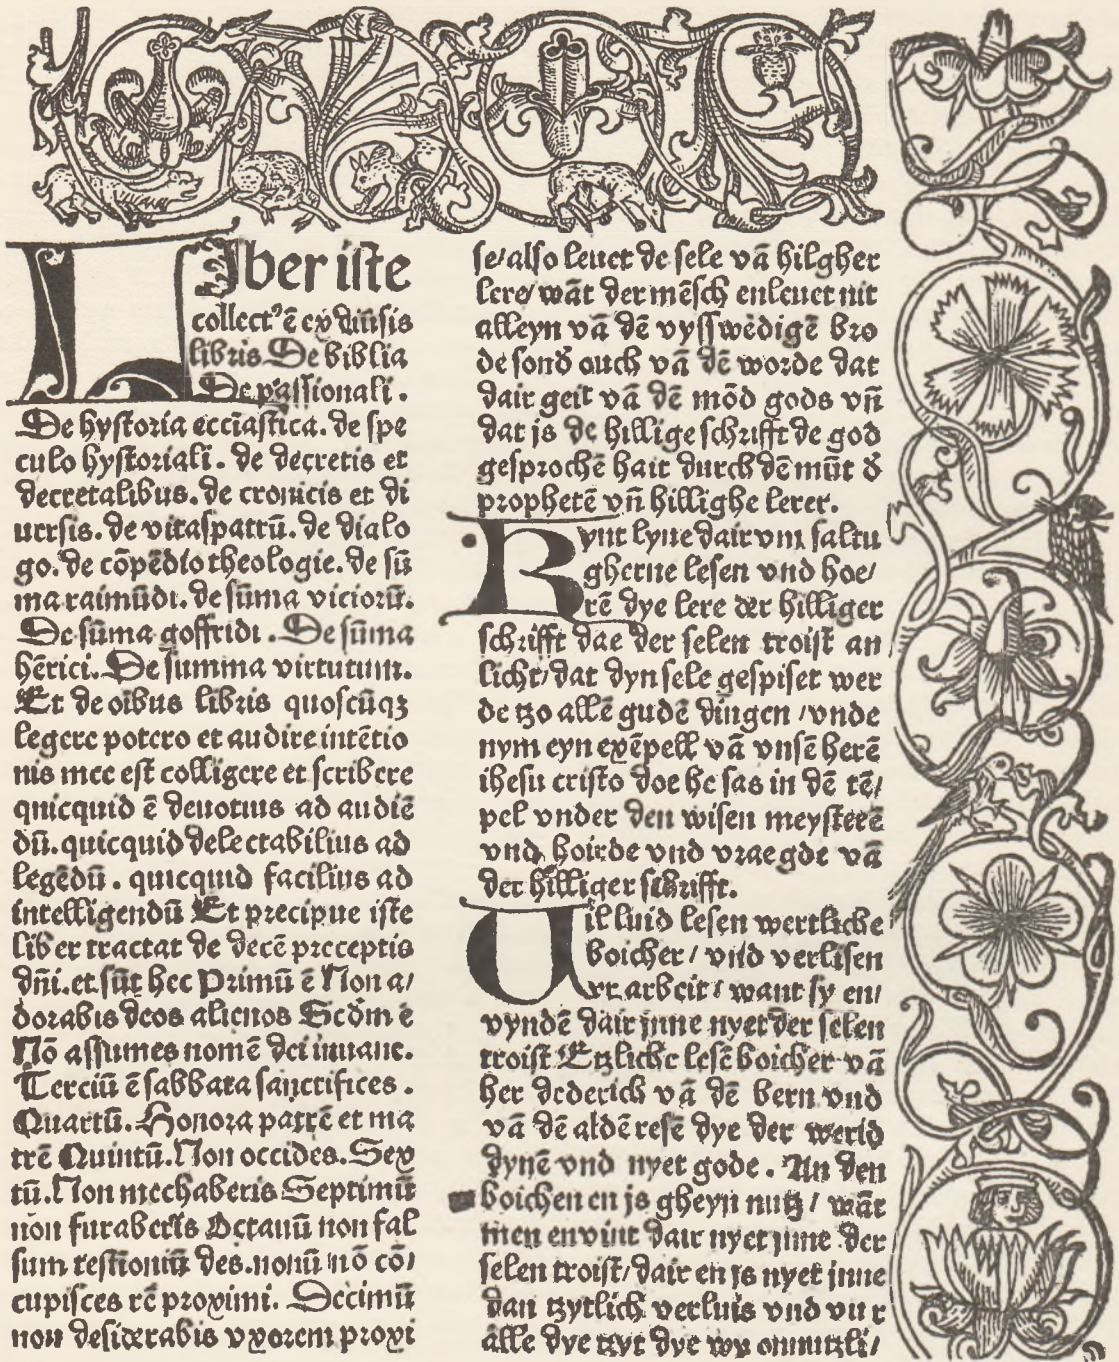 Liber iste
collect᾽ ē ex diũsis
libris. De biblia
De passionali.
De hystoria eccĩastica. de spe
culo hystoriali. de decretis et
decretalibus. de cronicis et di
uersis. de vitaspatrũ. de dialo
go. de cõpẽdio theologie. de sũ
ma raimũdi. de sũma viciorũ.
De sũma goffridi. De sũma
hẽrici. De summa virtutum.
Et de oĩbus libris quoscũqꝫ
legere potero et audire intẽtio
nis mee est colligere et scribere
quicquid ē deuotius ad audiẽ
dũ. quicquid delectabilius ad
legẽdũ. quicquid facilius ad
intelligendũ Et precipue iste
liber tractat de decẽ preceptis
dñi. et sũt hec Primũ ē Non a/
dorabis deos alienos Scdm ē
Nõ assumes nomẽ dei inuane.
Terciũ ē sabbata sanctifices.
Quartũ. Honora patrẽ et ma
trẽ Quintũ. Non occides. Sex
tũ. Non mechaberis Septimũ
non furaberis Octauũ non fal
sum testioniũ des. nonũ nõ cõ/
cupisces rẽ proximi. Decimũ
non desiderabis vxorem proxi
se/ also leuet de sele vã hilgher
lere/ wãt der mẽsch enleuet nit
alleyn vã dẽ vysswẽdigẽ bro
de sonđ ouch vã dẽ worde dat
dair geit vã dẽ mõd gods vñ
dat js de hillige schrifft de god
gesprochẽ hait durch dẽ mũt đ
prophetẽ vñ hillighe lerer.
Kynt lyne dair vm saltu
gherne lesen vnd hoe/
rẽ dye lere der hilliger
schrifft dae der selen troist an
licht/ dat dyn sele gespiset wer
de tzo allẽ gudẽ dingen /vnde
nym eyn exẽpell vã vnsẽ herẽ
ihesu cristo doe he sas in dẽ tẽ/
pel vnder den wisen meysterẽ
vnd hoirde vnd vraegde vã
der hilliger schrifft.
Uil luid lesen wertliche
boicher/ vnd verlisen
yr arbeit/ want sy en/
vyndẽ dair jnne nyet der selen
troist Etzliche lesẽ boicher vã
her dederich vã dẽ bern vnd
vã dẽ aldẽ resẽ dye der werld
dynẽ vnd nyet gode. An den
boichen en js gheyn nutz/ wãt
men envint dair nyet jnne der
selen troist/ dair en js nyet jnne
dan tzytlich verluis vnd vur
alle dye tzyt dye wy onnutzli/